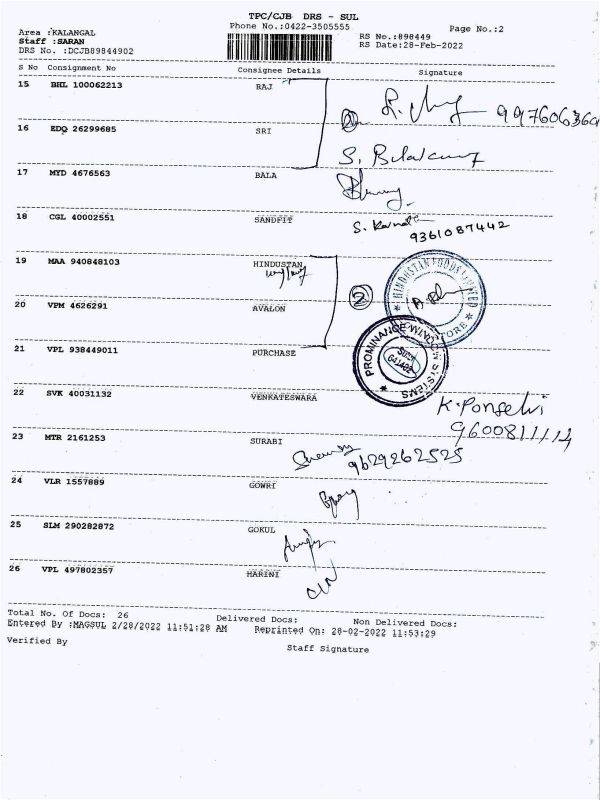 TPC/CJB DRS - SUL
Phone No.:0422-3505555
Page No.:2
Area :KALANGAL
Staff :SARAN
DRS No. :DCJB89844902
RS No.:898449
RS Date:28-Feb-2022
S No Consignment No Consignee Details Signature
15 BHL 100062213 RAJ
16 EDQ 26299685 SRI
S. Balakumar
17 MYD 4676563 BALA
18 CGL 40002551 SANDFIT
9361087442
19 MAA 940848103 HINDUSTAN
HINDUSTAN FOODS LIMITED
2
20 VPM 4626291 AVALON
PROMINANCE WINDOW SYSTEMS
21 VPL 938449011 PURCHASE
22 SVK 40031132 VENKATESWARA
K.Ponselvi
23 MTR 2161253 SURABI
9629262525
24 VLR 1557889 GOWRI
25 SLM 290282872 GOKUL
26 VPL 497802357 HARINI
Total No. Of Docs: 26 Delivered Docs: Non Delivered Docs:
Entered By :MAGSUL 2/28/2022 11:51:28 AM Reprinted On: 28-02-2022 11:53:29
Verified By
Staff Signature